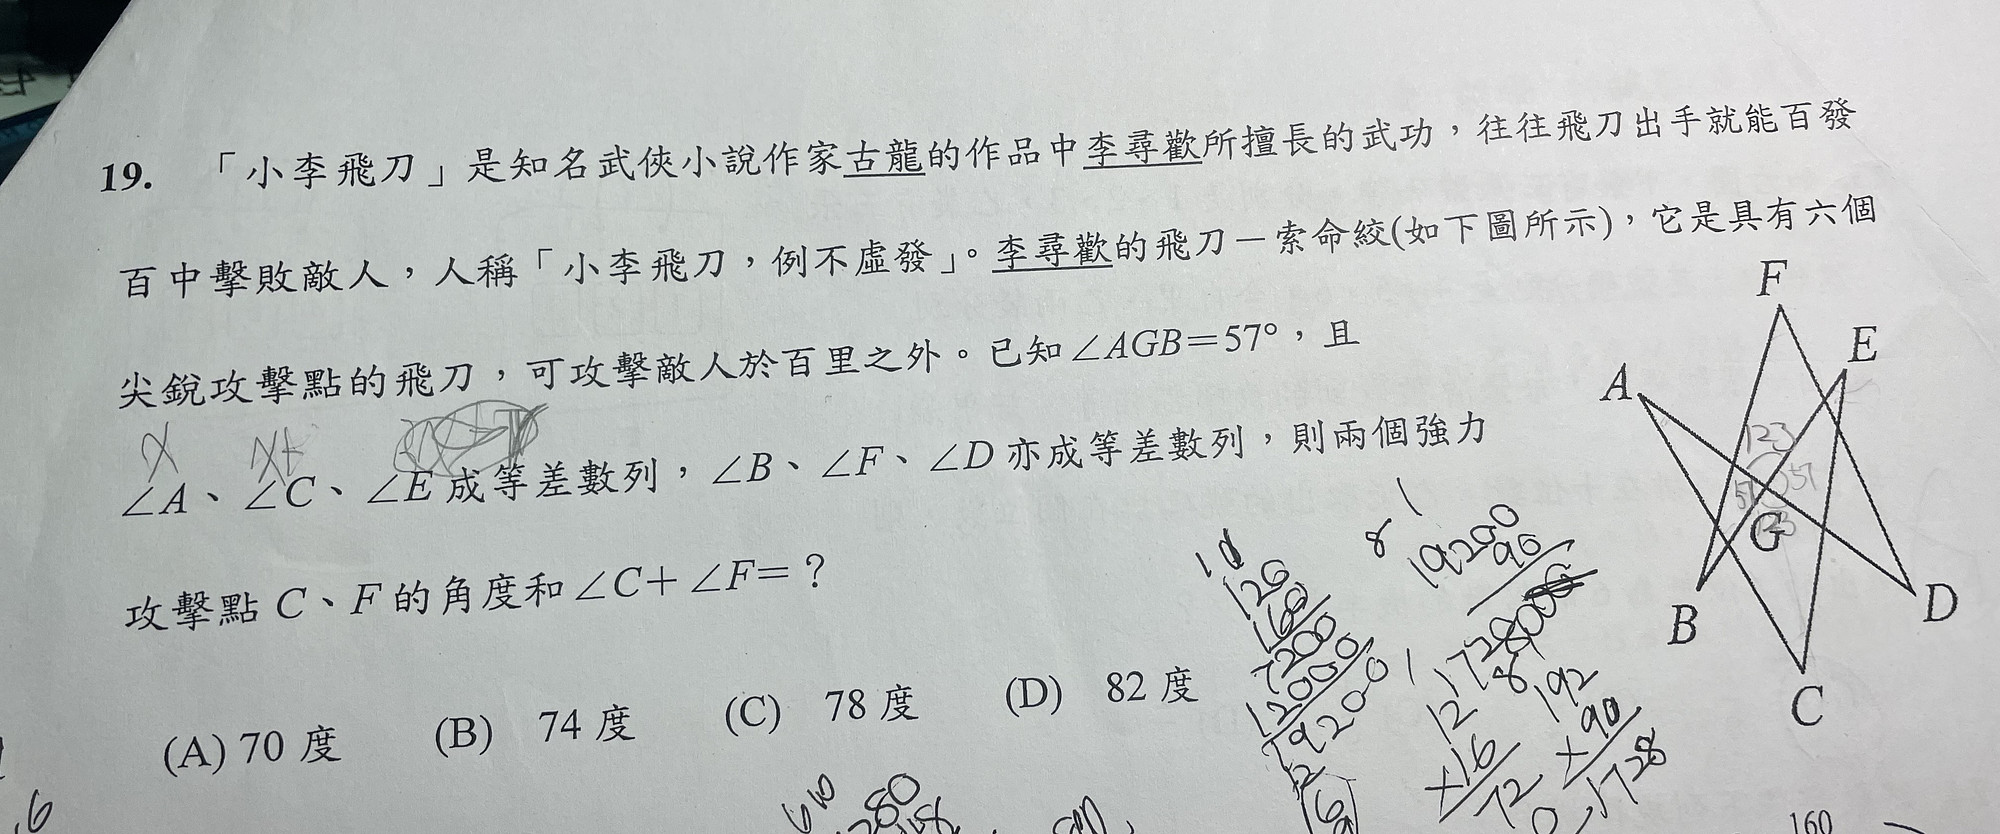 19. 「小李飛刀」是知名武俠小說作家古龍的作品中李尋歡所擅長的武功，往往飛刀出手就能百發
百中擊敗敵人，人稱「小李飛刀，例不虛發」。李尋歡的飛刀－索命絞(如下圖所示)，它是具有六個
尖銳攻擊點的飛刀，可攻擊敵人於百里之外。已知∠AGB＝57°，且
∠A、∠C、∠E 成等差數列，∠B、∠F、∠D 亦成等差數列，則兩個強力
攻擊點 C、F 的角度和∠C＋∠F＝？
(A) 70 度 (B) 74 度 (C) 78 度 (D) 82 度
F
E
A
123
57
G
B
D
C
120
160
7200
12000
19200
19200
90
1728000
12
×16
72
192
×90
1728
160